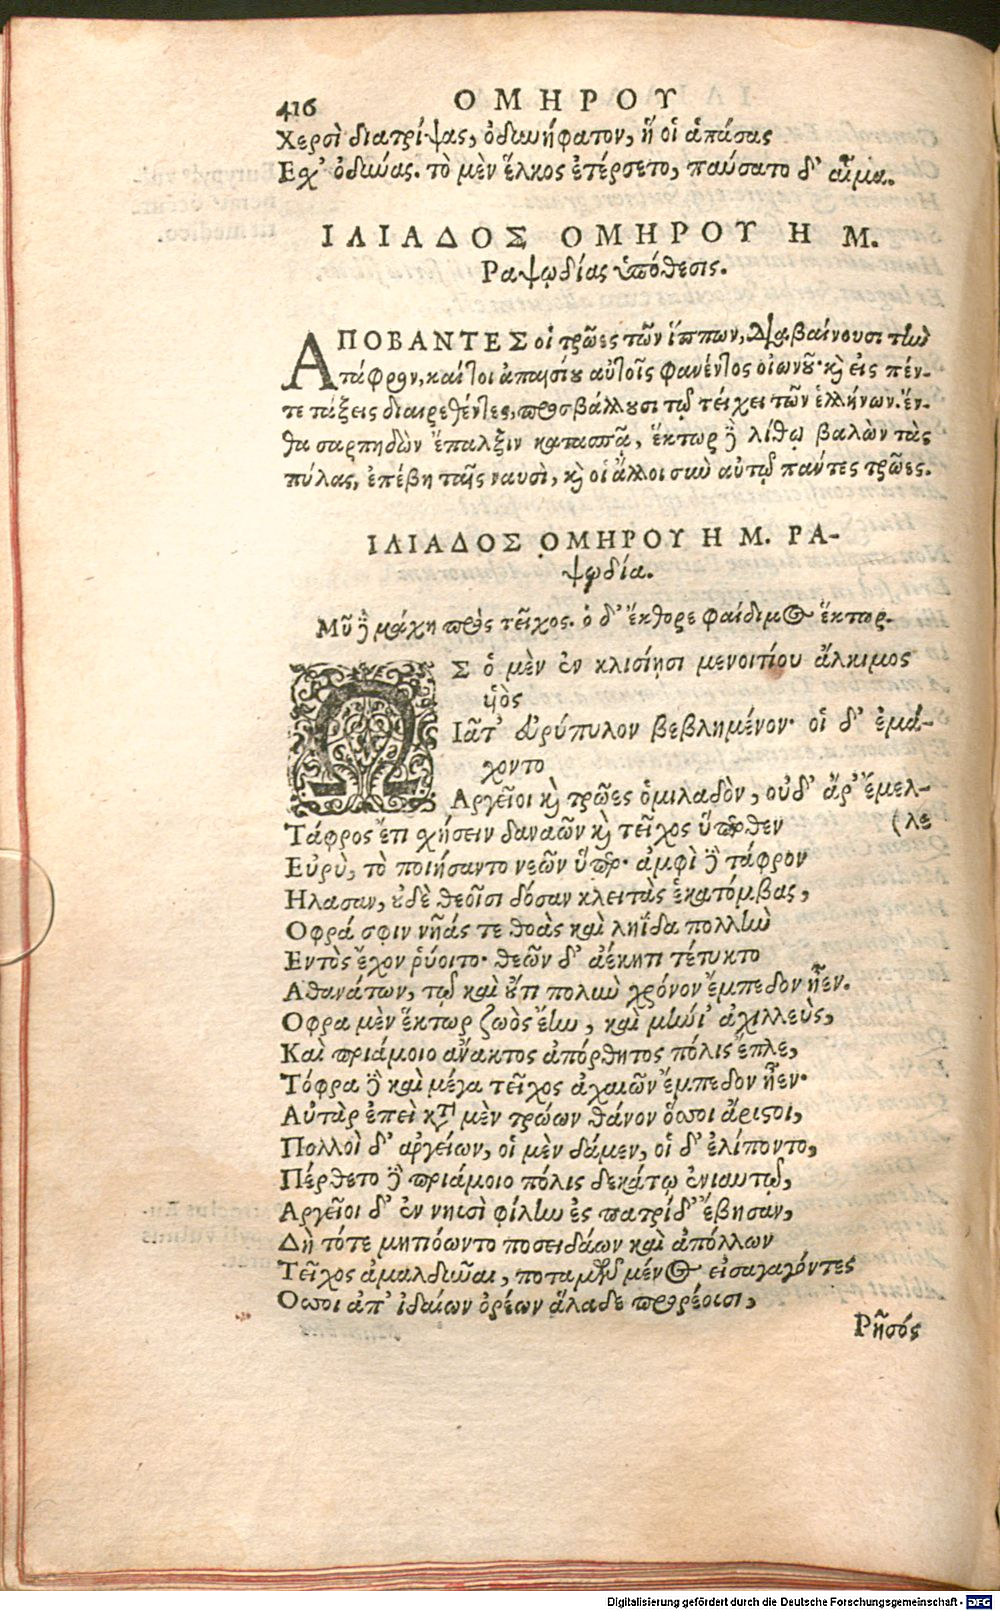 416 ΟΜΗΡΟΥ
Χερσὶ διατρίψας, ὀδυνήφατον, ἥ οἱ ἁπάσας
Εσχ' ὀδύνας. τὸ μὲν ἕλκος ἐτέρσετο, παύσατο δ' αἷμα.
ΙΛΙΑΔΟΣ ΟΜΗΡΟΥ Η Μ.
Ραψῳδίας ὑπόθεσις.
ΑΠΟΒΑΝΤΕΣ οἱ τρῶες τῶν ἵππων, διαβαίνουσι τὴν
τάφρον, καίτοι ἀπαισίου αὐτοῖς φανέντος οἰωνοῦ· καὶ εἰς πέν-
τε τάξεις διαιρεθέντες, προσβάλλουσι τῷ τείχει τῶν ἑλλήνων. ἔν-
θα σαρπηδὼν ἔπαλξιν κατασπᾶ, ἕκτωρ δὲ λίθῳ βαλὼν τὰς
πύλας, ἐπέβη ταῖς ναυσὶ, καὶ οἱ ἄλλοι σὺν αὐτῷ πάντες τρῶες.
ΙΛΙΑΔΟΣ ΟΜΗΡΟΥ Η Μ. ΡΑ-
ψῳδία.
Μῦ δὲ μάχη πρὸς τεῖχος. ὁ δ' ἔκθορε φαίδιμος ἕκτωρ.
ΩΣ ὁ μὲν ἐν κλισίῃσι μενοιτίου ἄλκιμος
υἱὸς
Ιᾶτ' εὐρύπυλον βεβλημένον· οἱ δ' ἐμά-
χοντο
Αργεῖοι καὶ τρῶες ὁμιλαδὸν, οὐδ' ἄρ' ἔμελ-
Τάφρος ἔτι σχήσειν δαναῶν καὶ τεῖχος ὕπερθεν (λε
Εὐρὺ, τὸ ποιήσαντο νεῶν ὕπερ· ἀμφὶ δὲ τάφρον
Ηλασαν, οὐδὲ θεοῖσι δόσαν κλειτὰς ἑκατόμβας,
Οφρά σφιν νῆάς τε θοὰς καὶ ληΐδα πολλὴν
Εντὸς ἔχον ῥύοιτο· θεῶν δ' ἀέκητι τέτυκτο
Αθανάτων, τῷ καὶ οὔτι πολὺν χρόνον ἔμπεδον ἦεν.
Οφρα μὲν ἕκτωρ ζωὸς ἔην, καὶ μήνι' ἀχιλλεὺς,
Καὶ πριάμοιο ἄνακτος ἀπόρθητος πόλις ἔπλε,
Τόφρα δὲ καὶ μέγα τεῖχος ἀχαιῶν ἔμπεδον ἦεν·
Αὐτὰρ ἐπεὶ κατὰ μὲν τρώων θάνον ὅσσοι ἄριστοι,
Πολλοὶ δ' ἀργείων, οἱ μὲν δάμεν, οἱ δ' ἐλίποντο,
Πέρθετο δὲ πριάμοιο πόλις δεκάτῳ ἐνιαυτῷ,
Αργεῖοι δ' ἐν νηυσὶ φίλην ἐς πατρίδ' ἔβησαν,
Δὴ τότε μητιόωντο ποσειδάων καὶ ἀπόλλων
Τεῖχος ἀμαλδῦναι, ποταμῶν μένος εἰσαγαγόντες
Οσσοι ἀπ' ἰδαίων ὀρέων ἅλαδε προρέουσι,
Ρῆσός
Digitalisierung gefördert durch die Deutsche Forschungsgemeinschaft - DFG